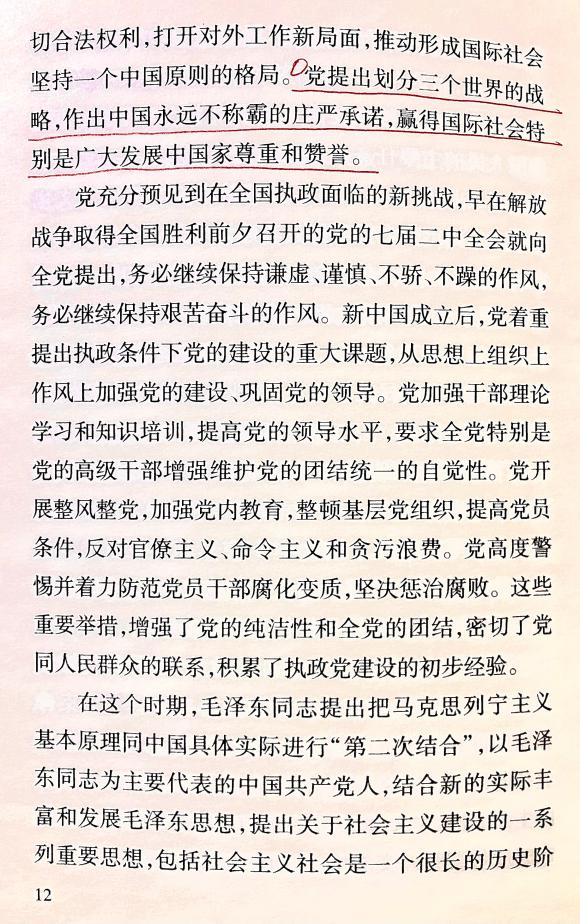 切合法权利,打开对外工作新局面,推动形成国际社会
坚持一个中国原则的格局。党提出划分三个世界的战
略,作出中国永远不称霸的庄严承诺,赢得国际社会特
别是广大发展中国家尊重和赞誉。
党充分预见到在全国执政面临的新挑战,早在解放
战争取得全国胜利前夕召开的党的七届二中全会就向
全党提出,务必继续保持谦虚、谨慎、不骄、不躁的作风,
务必继续保持艰苦奋斗的作风。新中国成立后,党着重
提出执政条件下党的建设的重大课题,从思想上组织上
作风上加强党的建设、巩固党的领导。党加强干部理论
学习和知识培训,提高党的领导水平,要求全党特别是
党的高级干部增强维护党的团结统一的自觉性。党开
展整风整党,加强党内教育,整顿基层党组织,提高党员
条件,反对官僚主义、命令主义和贪污浪费。党高度警
惕并着力防范党员干部腐化变质,坚决惩治腐败。这些
重要举措,增强了党的纯洁性和全党的团结,密切了党
同人民群众的联系,积累了执政党建设的初步经验。
在这个时期,毛泽东同志提出把马克思列宁主义
基本原理同中国具体实际进行“第二次结合”,以毛泽
东同志为主要代表的中国共产党人,结合新的实际丰
富和发展毛泽东思想,提出关于社会主义建设的一系
列重要思想,包括社会主义社会是一个很长的历史阶
12